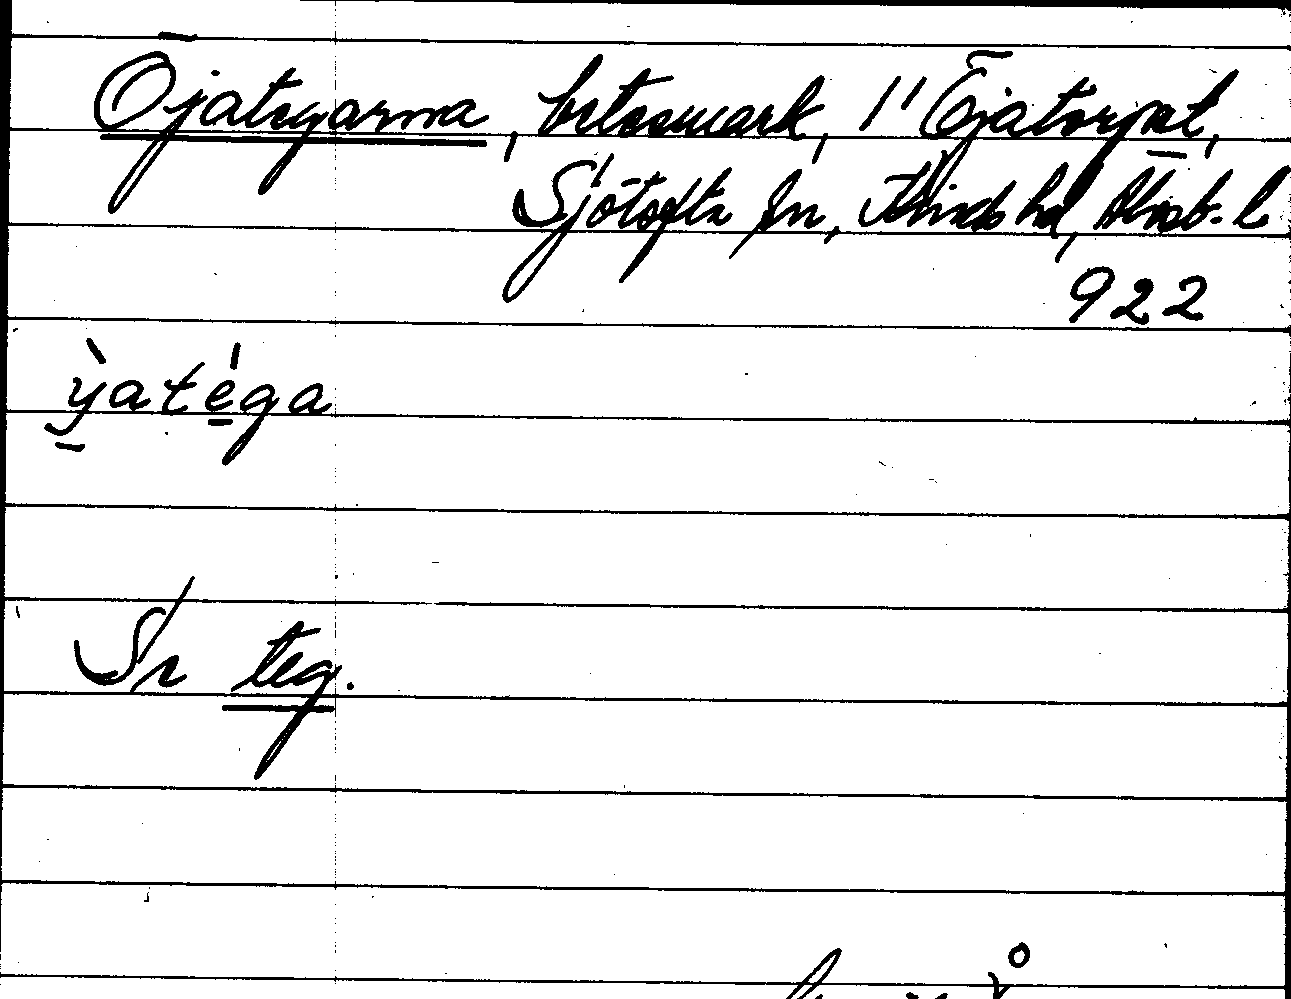 Öjategarna, betesmark, 1" Öjatorpet,
Sjötofta sn, Kinds hd, Älvsb. l
922
ỳatéga
Se teg.